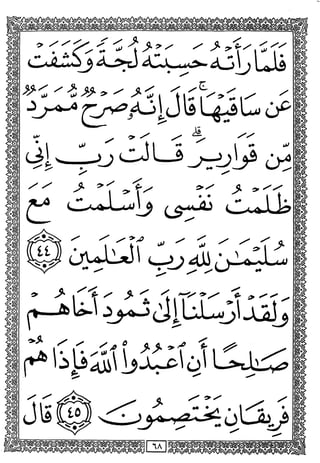 فَلَمَّا رَأَتْهُ حَسِبَتْهُ لُجَّةً وَكَشَفَتْ
عَن سَاقَيْهَا ۚ قَالَ إِنَّهُۥ صَرْحٌ مُّمَرَّدٌ
مِّن قَوَارِيرَ ۗ قَالَتْ رَبِّ إِنِّى
ظَلَمْتُ نَفْسِى وَأَسْلَمْتُ مَعَ
سُلَيْمَـٰنَ لِلَّهِ رَبِّ ٱلْعَـٰلَمِينَ ٤٤
وَلَقَدْ أَرْسَلْنَآ إِلَىٰ ثَمُودَ أَخَاهُمْ
صَـٰلِحًا أَنِ ٱعْبُدُوا۟ ٱللَّهَ فَإِذَا هُمْ
فَرِيقَانِ يَخْتَصِمُونَ ٤٥ قَالَ
٦٨